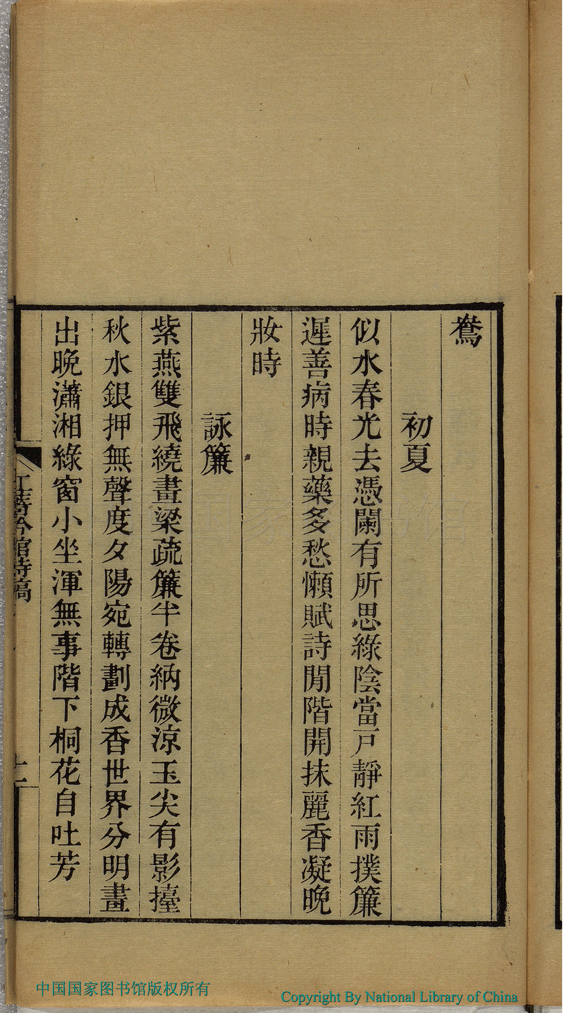 鴦
初夏
似水春光去憑闌有所思綠陰當戸靜紅雨撲簾
遲善病時親藥多愁懶賦詩閒階開抹麗香凝晚
妝時
詠簾
紫燕雙飛繞畫梁疏簾半卷納微涼玉尖有影擡
秋水銀押無聲度夕陽宛轉劃成香世界分明畫
出晚瀟湘綠窗小坐渾無事階下桐花自吐芳
館詩稿
中国国家图书馆版权所有
Copyright By National Library of China